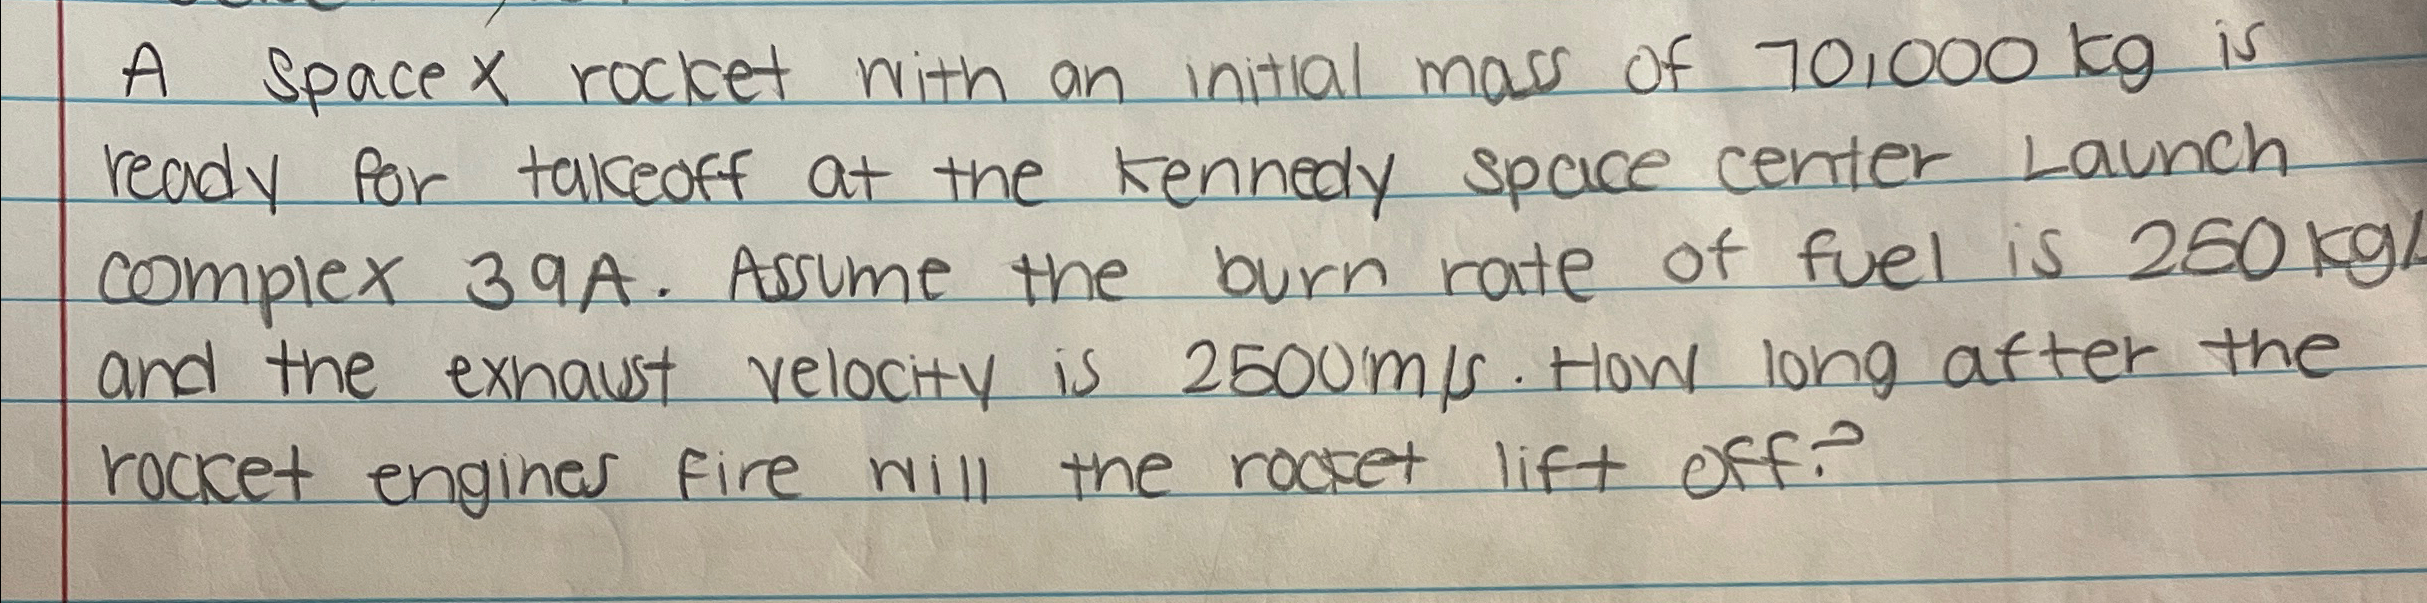 A space X rocket with an initial mass of 70,000 kg is
ready for takeoff at the Kennedy space center Launch
complex 39A. Assume the burn rate of fuel is 250 kg/
and the exhaust velocity is 2500m/s. How long after the
rocket engines fire will the rocket lift off?